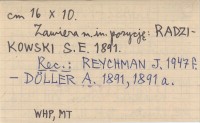 cm 16 × 10.
Zawiera m.in. pozycje: RADZI-
KOWSKI S.E. 1891.
Rec.: REYCHMAN J. 1947 f.
– DÖLLER A. 1891, 1891 a.
WHP, MT